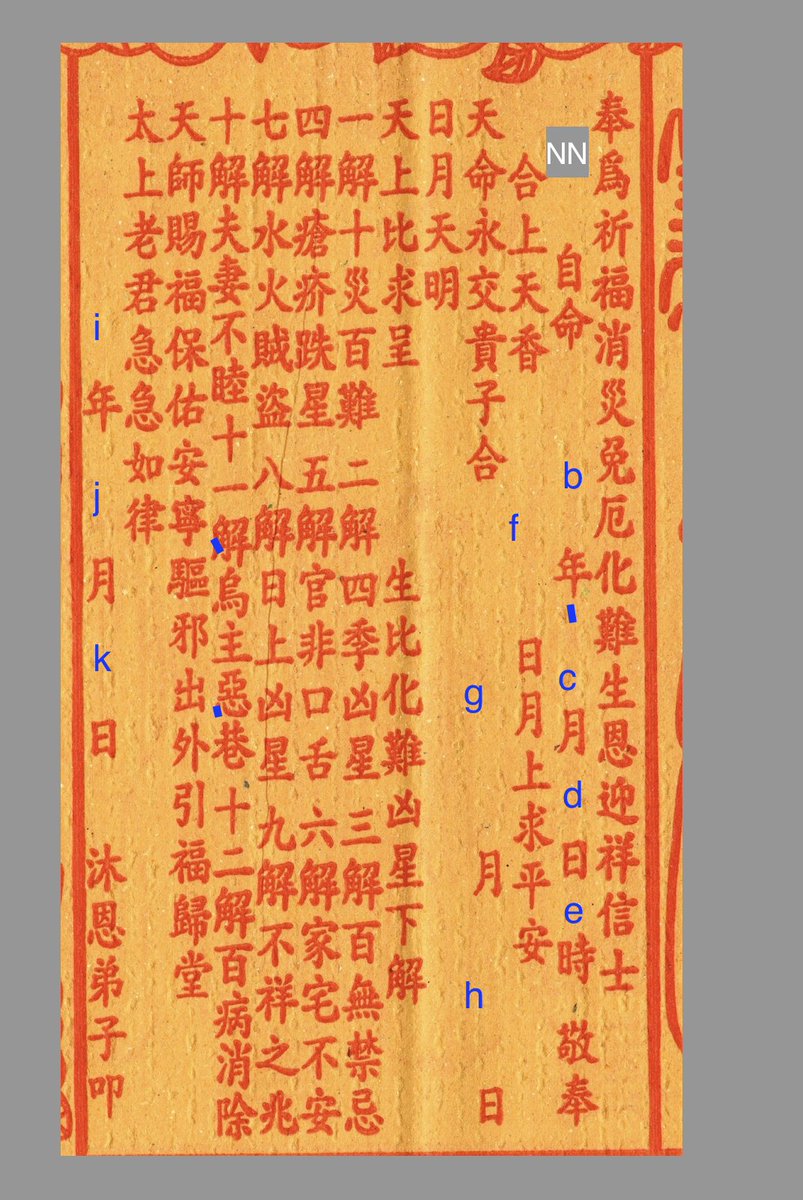 奉為祈福消災免厄化難生恩迎祥信士
NN 自命 b 年 c 月 d 日 e 時 敬奉
合上天香 f 日月上求平安
天命永交貴子合 g 月 h 日
日月天明
天上比求呈 生比化難凶星下解
一解十災百難 二解四季凶星 三解百無禁忌
四解瘡疥跌星 五解官非口舌 六解家宅不安
七解水火賊盜 八解日上凶星 九解不祥之兆
十解夫妻不睦 十一解烏主惡巷 十二解百病消除
天師賜福保佑安寧驅邪出外引福歸堂
太上老君急急如律
i 年 j 月 k 日 沐恩弟子叩